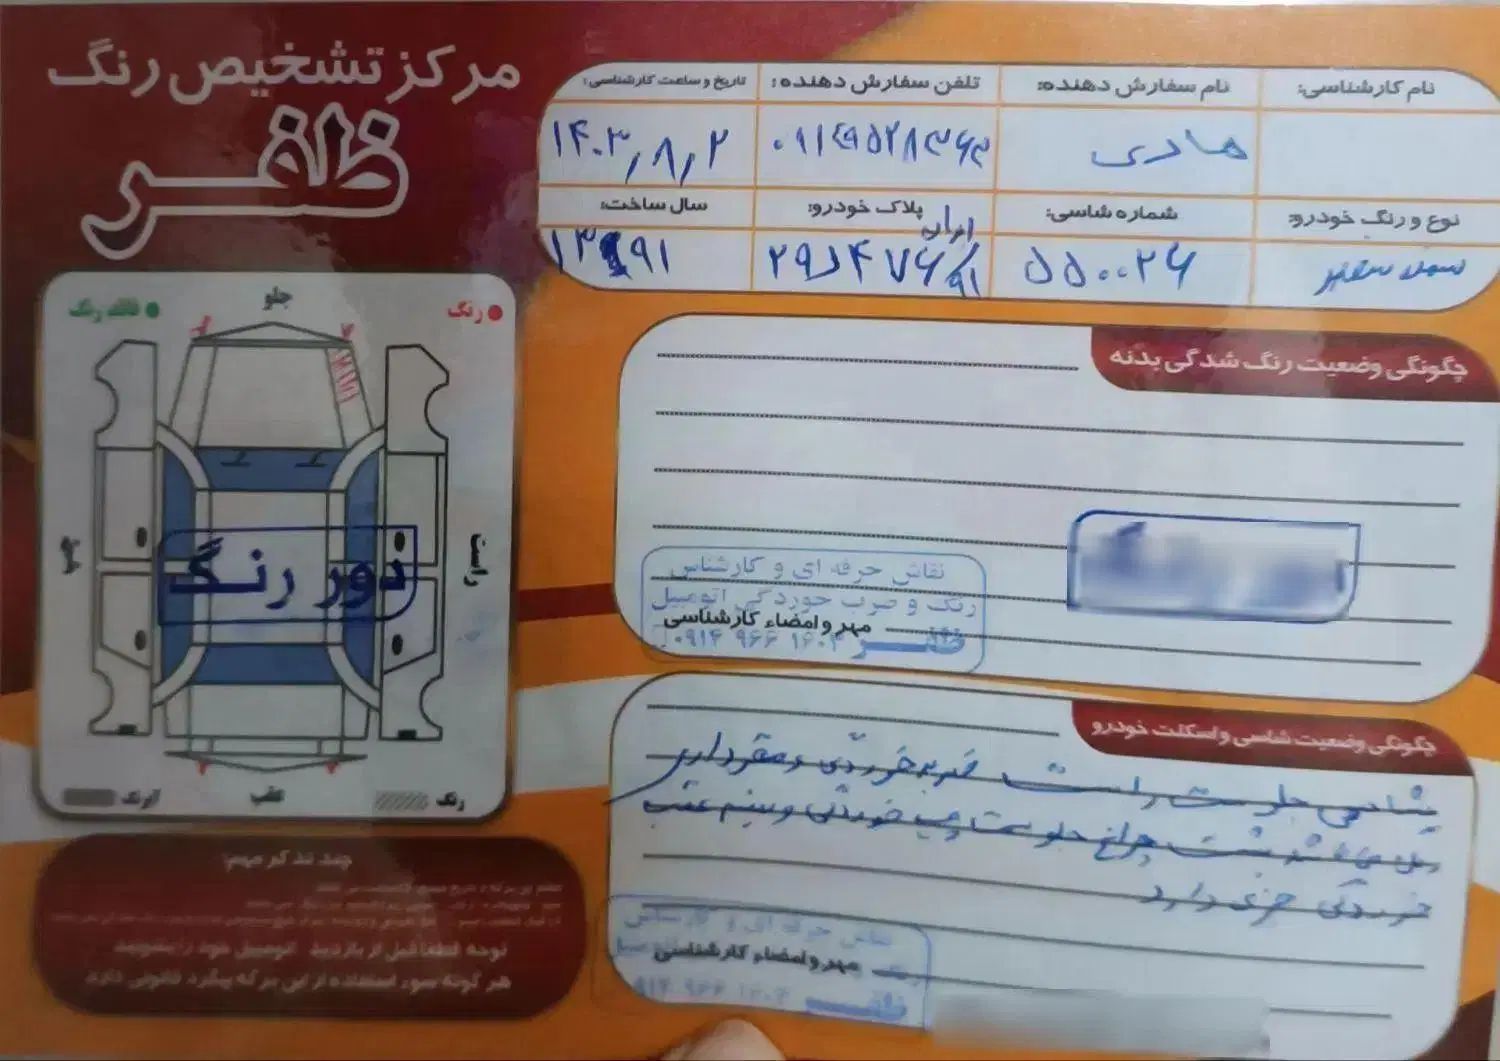 مرکز تشخیص رنگ
ظفر
نام کارشناسی:
نام سفارش دهنده:
تلفن سفارش دهنده:
تاریخ و ساعت کارشناسی:
هادی
۱۴۰۳٫۸٫۲
نوع و رنگ خودرو:
شماره شاسی:
پلاک خودرو:
سال ساخت:
سمند سفید
۵۵۰۰۲۶
ایران
۹۱
۱۳۹۱
رنگ
جلو
فاقد رنگ
راست
چپ
دور رنگ
رنگ
عقب
چگونگی وضعیت رنگ شدگی بدنه
نقاش حرفه ای و کارشناس
رنگ و ضرب خوردگی اتومبیل
مهر و امضاء کارشناسی
ظفر ۰۹۱۴ ۹۶۶ ۱۶۰۴
چگونگی وضعیت شاسی و اسکلت خودرو
شاسی جلو سمت راست ضربه خوردگی و مقداری
چراغ جلو سمت چپ خوردگی و سینی عقب
خوردگی جزی دارد
نقاش حرفه ای و کارشناس
مهر و امضاء کارشناسی
ظفر
چند تذکر مهم:
توجه لطفا قبل از بازدید اتومبیل خود را بشوئید
هر گونه سوء استفاده از این برگه پیگرد قانونی دارد